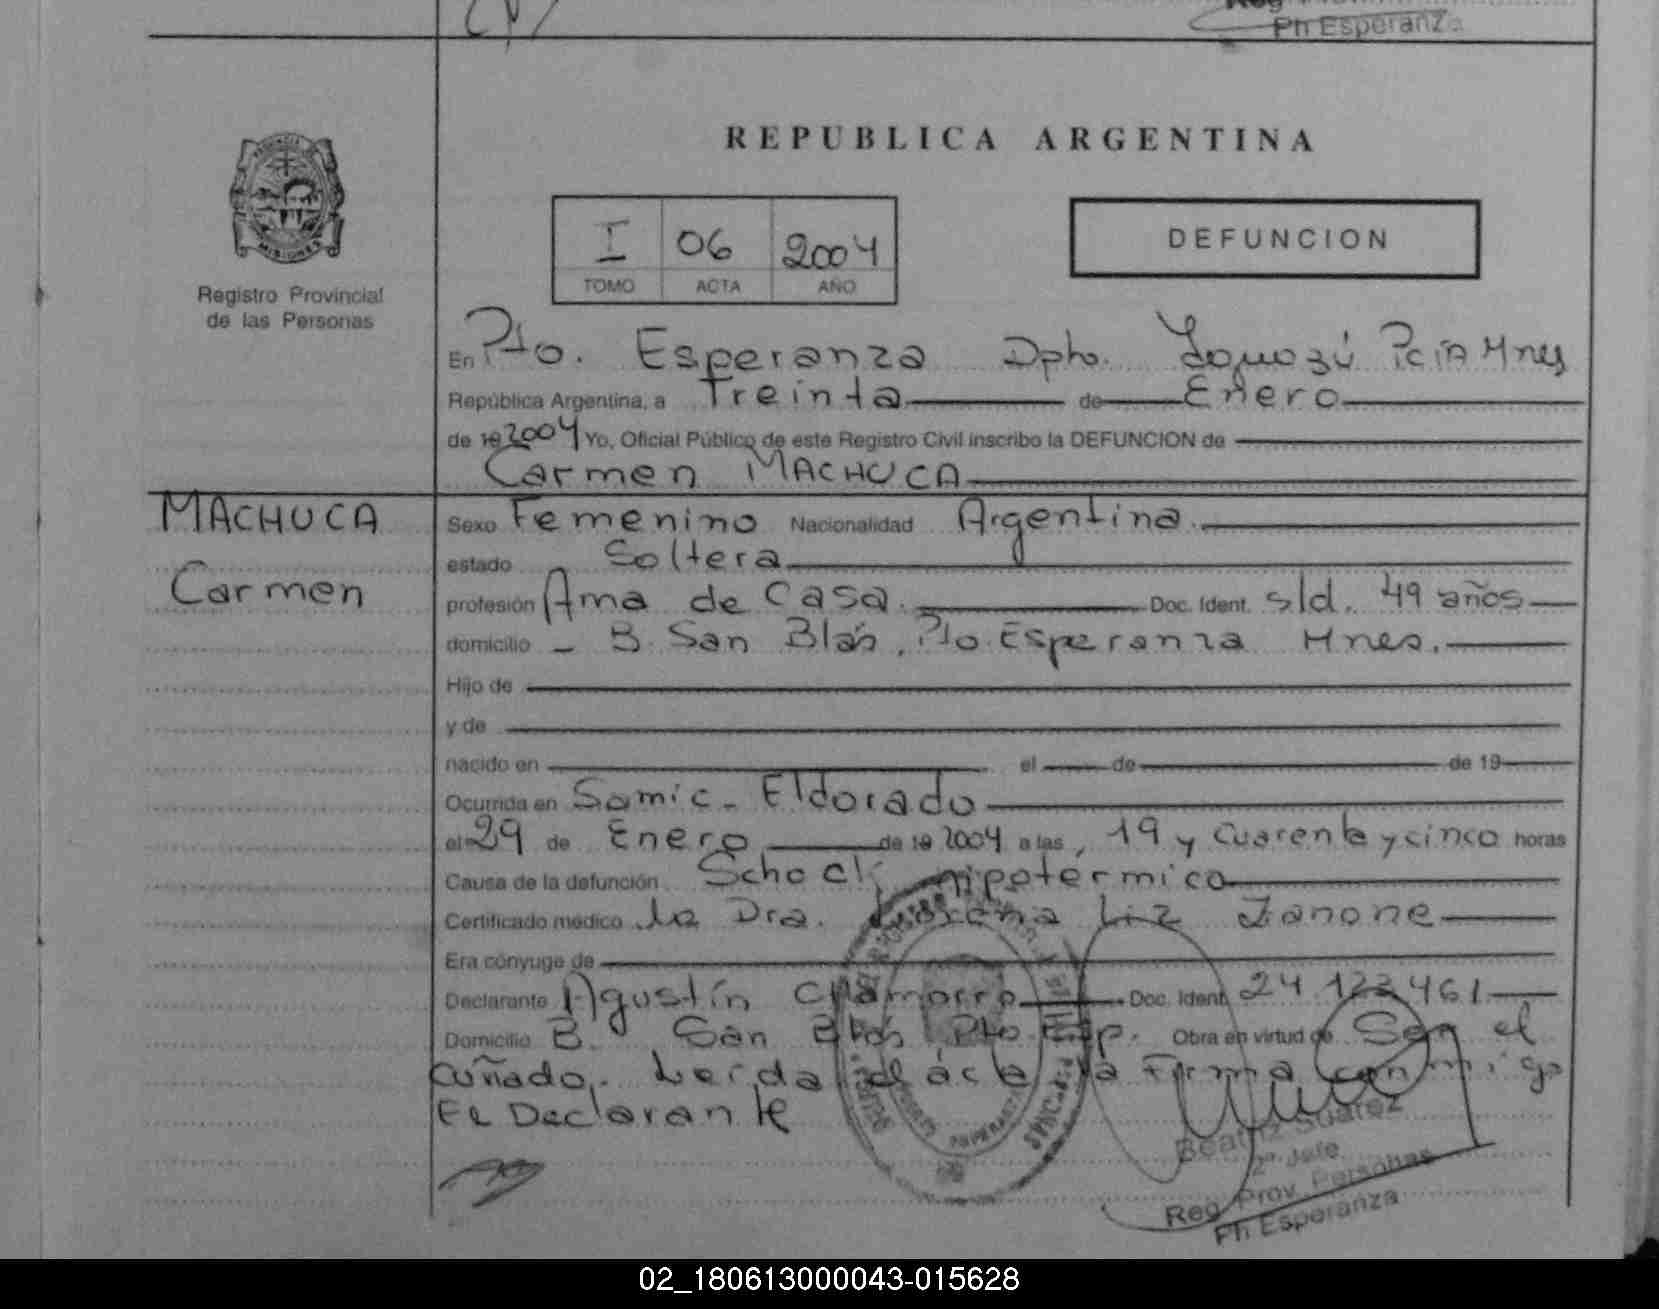 Ph Esperanza
REPUBLICA ARGENTINA
MISIONES
Registro Provincial
de las Personas
I 06 2004
TOMO ACTA AÑO
DEFUNCION
En Pto. Esperanza Dpto. Iguazú Pcia Mnes
República Argentina, a Treinta de Enero
de 19 2004 Yo, Oficial Público de este Registro Civil inscribo la DEFUNCION de
Carmen MACHUCA
MACHUCA
Carmen
Sexo Femenino Nacionalidad Argentina.
estado Soltera
profesión Ama de Casa. Doc. Ident. s/d. 49 años
domicilio - B. San Blás, Pto. Esperanza Mnes.
Hijo de
y de
nacido en el de de 19
Ocurrida en Samic - Eldorado
el 29 de Enero de 19 2004 a las, 19 y cuarenta y cinco horas
Causa de la defunción Schock hipotermico
Certificado médico La Dra. Liz Zanone
Era cónyuge de
Declarante Agustín Chamorro Doc. Ident. 24 123 461
Domicilio B. San Blás Pto Esp. Obra en virtud de Ser el
cuñado. Leida el ácta la Firma conmigo
El Declarante
Beatriz Suarez
2º Jefe
Reg. Prov. Personas
Ph Esperanza
02_180613000043-015628